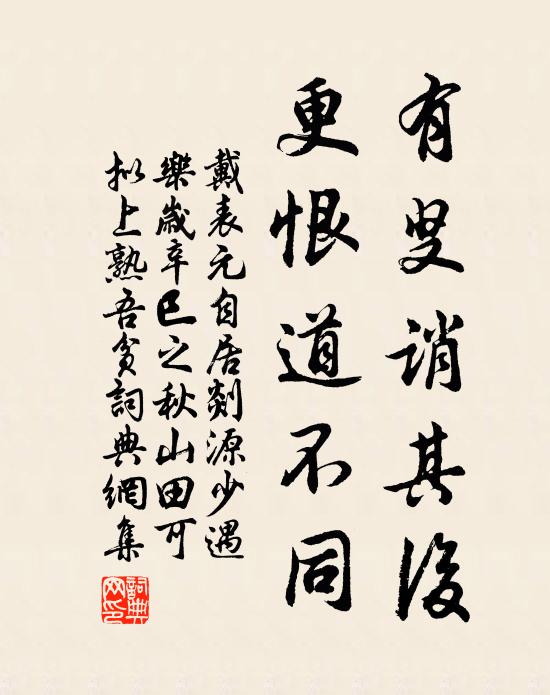 有叟誚其後
更恨道不同
戴表元自居剡源少遇
樂歲辛巳之秋山田可
擬上熟吾貧詞典網集
詞典網印